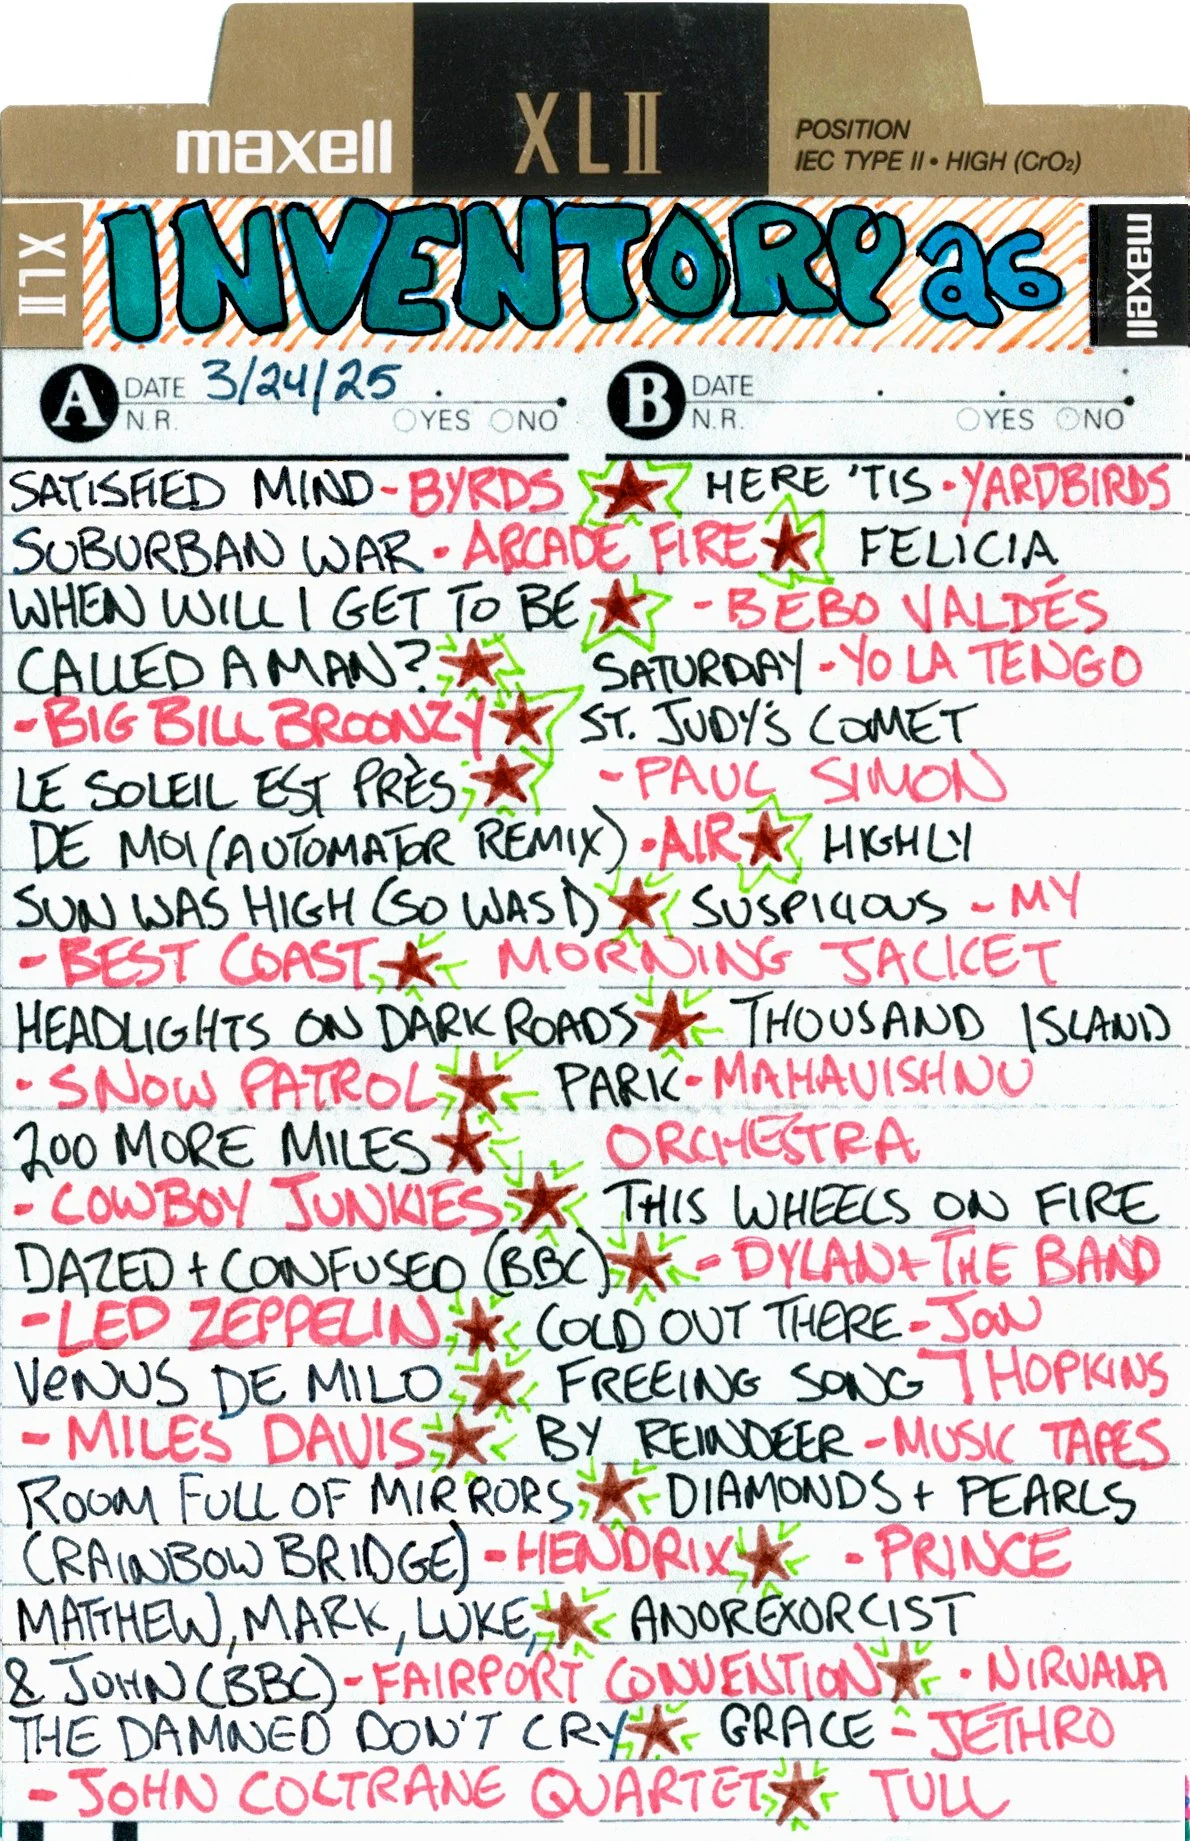 maxell XLII POSITION
IEC TYPE II • HIGH (CrO2)
XLII INVENTORY 26 maxell
A DATE 3/24/25
N.R. YES NO
B DATE
N.R. YES NO
SATISFIED MIND - BYRDS
SUBURBAN WAR - ARCADE FIRE
WHEN WILL I GET TO BE
CALLED A MAN?
- BIG BILL BROONZY
LE SOLEIL EST PRÈS
DE MOI (AUTOMATOR REMIX) - AIR
SUN WAS HIGH (SO WAS I)
- BEST COAST
HEADLIGHTS ON DARK ROADS
- SNOW PATROL
200 MORE MILES
- COWBOY JUNKIES
DAZED + CONFUSED (BBC)
- LED ZEPPELIN
VENUS DE MILO
- MILES DAVIS
ROOM FULL OF MIRRORS
(RAINBOW BRIDGE) - HENDRIX
MATTHEW, MARK, LUKE,
& JOHN (BBC) - FAIRPORT CONVENTION
THE DAMNED DON'T CRY
- JOHN COLTRANE QUARTET
HERE 'TIS - YARDBIRDS
FELICIA
- BEBO VALDÉS
SATURDAY - YO LA TENGO
ST. JUDY'S COMET
- PAUL SIMON
HIGHLY
SUSPICIOUS - MY
MORNING JACKET
THOUSAND ISLAND
PARK - MAHAVISHNU
ORCHESTRA
THIS WHEELS ON FIRE
- DYLAN + THE BAND
COLD OUT THERE - JON
HOPKINS
FREEING SONG
BY REINDEER - MUSIC TAPES
DIAMONDS + PEARLS
- PRINCE
ANOREXORCIST
- NIRVANA
GRACE - JETHRO
TULL